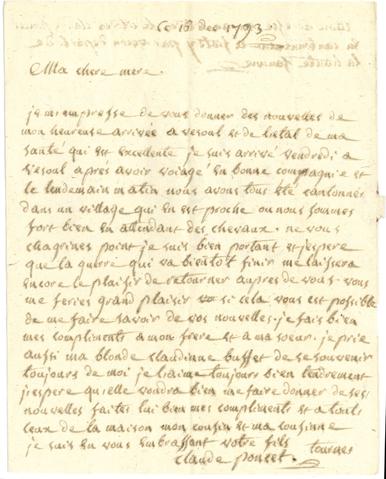 Ce 18 dec 1793
Ma chere mere.
je mi empresse de vous donner des nouvelles de
mon heureuse arrivée a vesoul et de letat de ma
santé qui est excellente je suis arrivé vendredi a
vesoul apres avoir voiagé en bonne compagnie et
le lendemain matin nous avons tout été cantonner
dans un village qui en est proche ou nous sommes
fort bien en attendant des chevaux. ne vous
chagrines point je suis bien portant et jespere
que la guerre qui va bientot finir me laissera
encore le plaisir de retourner aupres de vous. vous
me feries grand plaisir si cela vous est possible
de me faire savoir de vos nouvelles. je fais bien
mes compliments a mon frere et a ma soeur. je prie
aussi ma blonde claudinne buffet de se souvenir
toujours de moi je liaime toujours bien tendrement
jespere qu'elle voudra bien me faire donner de ses
nouvelles faites lui bien mes compliments et a touts
ceux de la maison mon cousin et ma cousinne
je suis en vous embrassant votre fils
tournes
claude ponset.